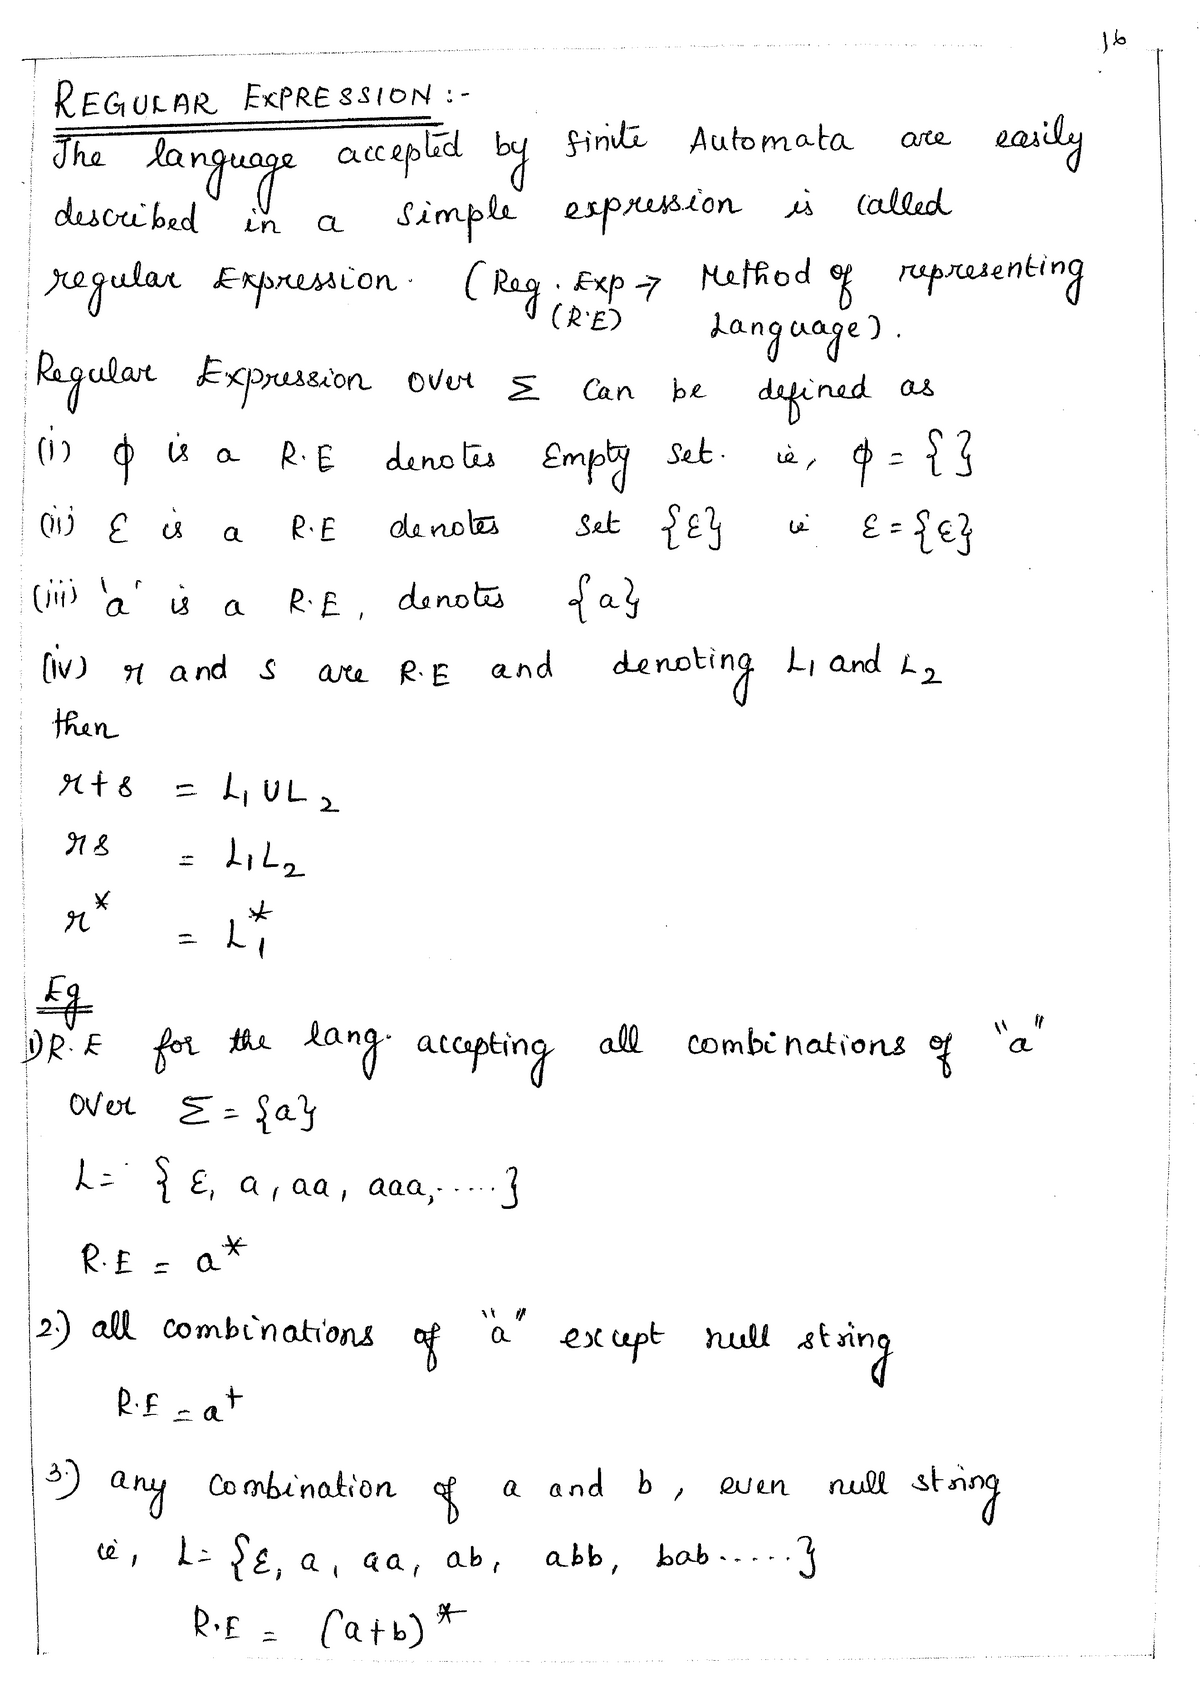 16
REGULAR EXPRESSION :-
The language accepted by finite Automata are easily
described in a simple expression is called
regular Expression. (Reg. Exp → Method of representing
(R.E) Language).
Regular Expression over Σ can be defined as
(i) ϕ is a R.E denotes Empty set. ie, ϕ = { }
(ii) ε is a R.E denotes set {ε} ie ε = {ε}
(iii) 'a' is a R.E, denotes {a}
(iv) r and s are R.E and denoting L₁ and L₂
then
r+s = L₁ U L₂
rs = L₁L₂
r* = L₁*
Eg
1) R.E for the lang. accepting all combinations of "a"
over Σ = {a}
L = { ε, a, aa, aaa, ..... }
R.E = a*
2.) all combinations of "a" except null string
R.E = a⁺
3.) any combination of a and b, even null string
ie, L = {ε, a, aa, ab, abb, bab ..... }
R.E = (a+b)*